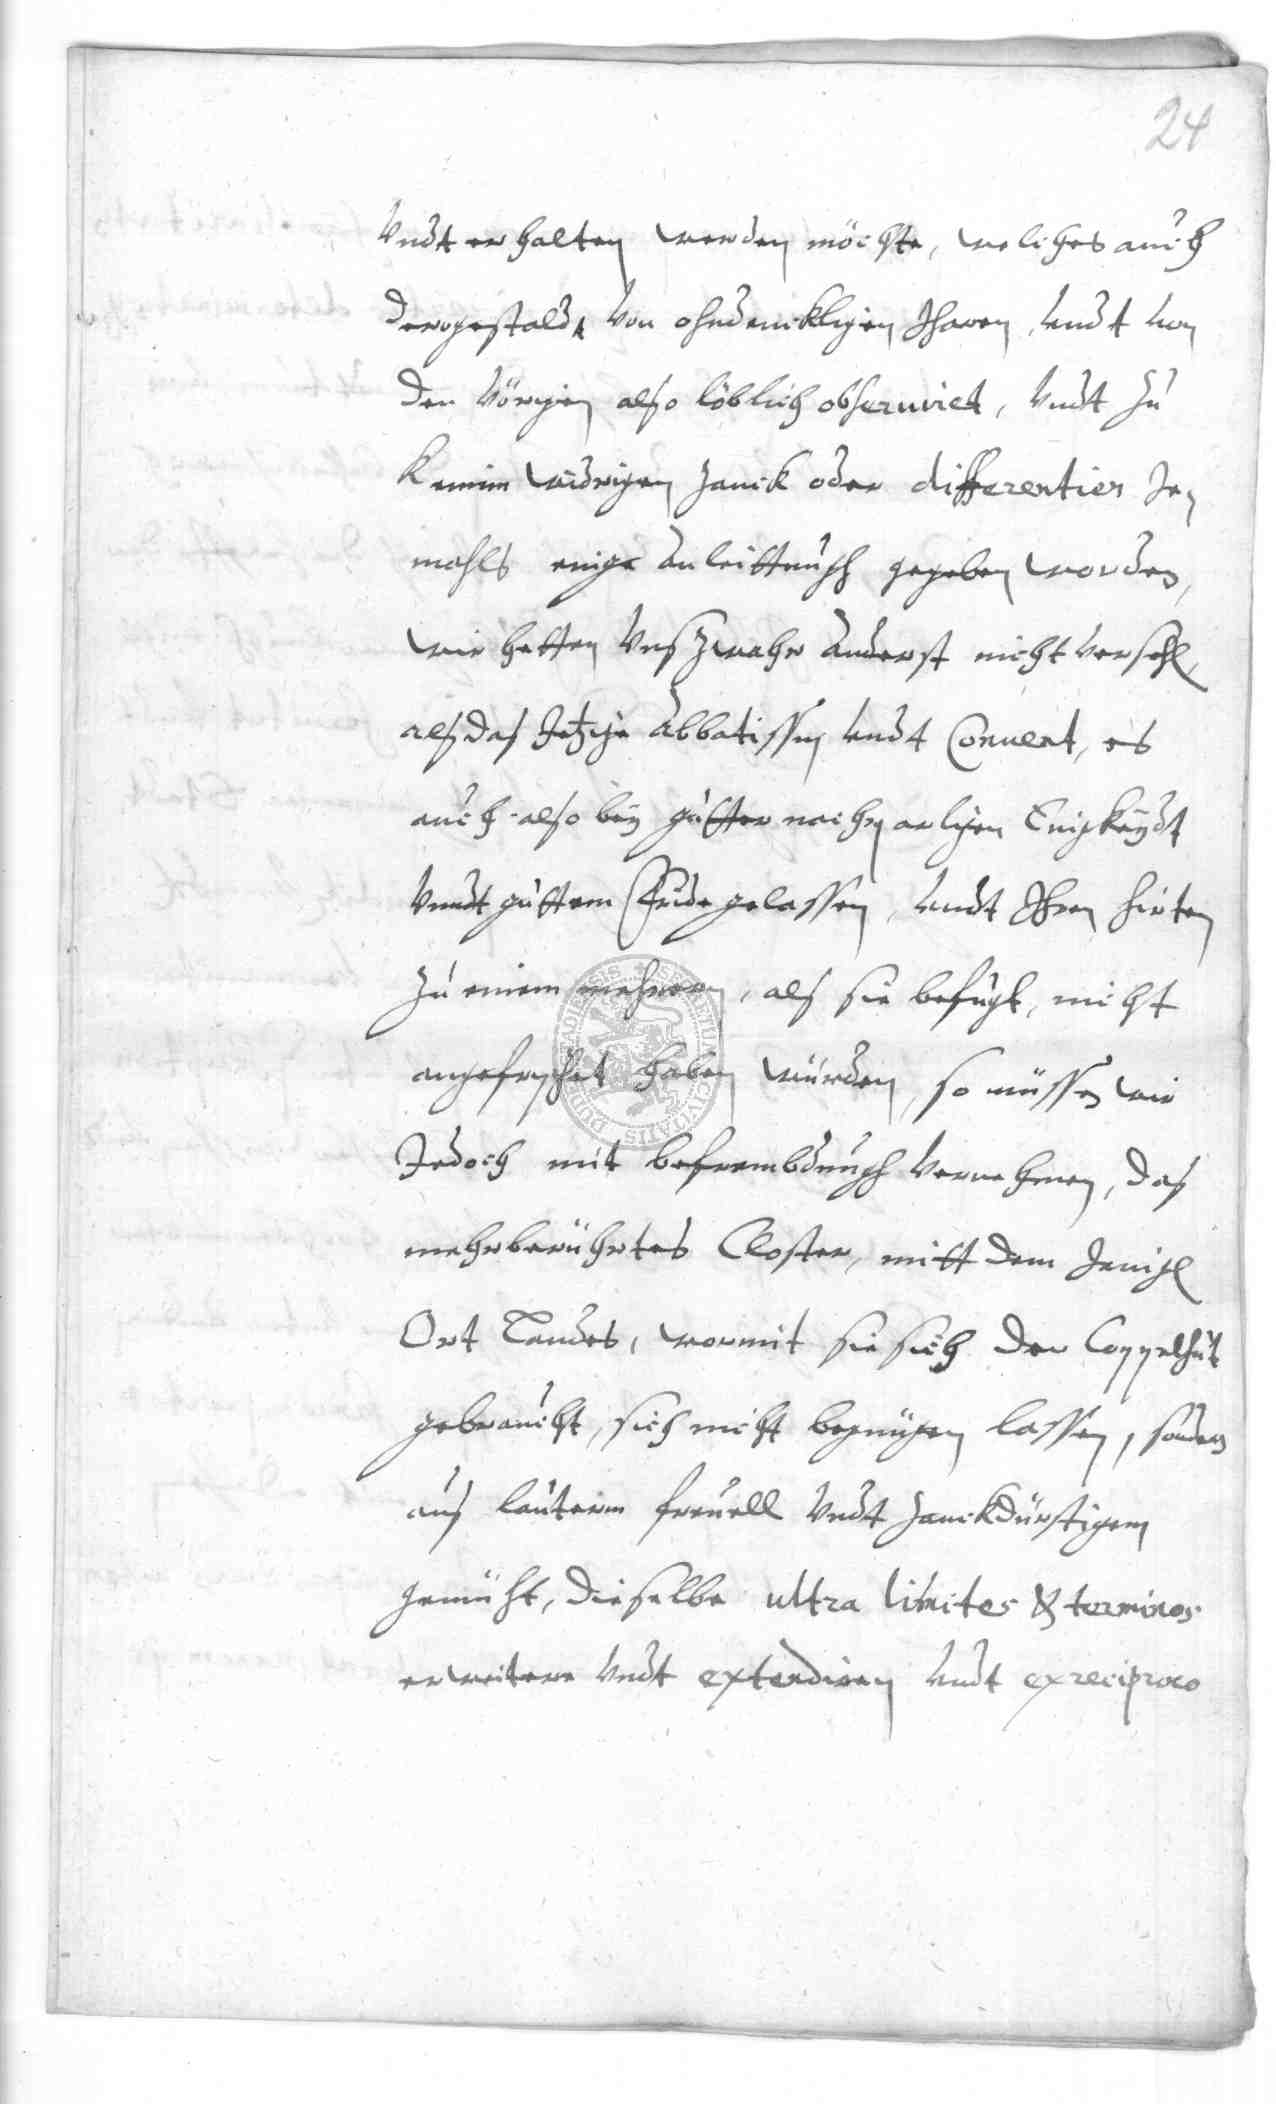 24
Vndt erhalten werden möchte, welches auch
dergestaldt von ohndencklichen Jharen, vndt von
den Vörigen also löblich obseruiret, Vndt Zu
Keinim widrigen Zanck oder differentien Je
mahls enige anleittnuhß gegeben worden,
wir hetten Vnß Zwahr anderst nicht Verseh.
alß daß Jetzige Abbatissin vndt Conuent, es
auch also bey gutter nachparlichen Enigkeydt
Vnndt guttem Fride gelassen, vndt Ihren hirten
Zu einem mehrern, alß sie befugt, nicht
angefryschet haben würden, so müssen wir
Jedoch mit befrembdnuß Vernehmen, daß
mehrberührtes Closter, mitt dem Jenig.
Ort Landes, wormit sie sich der Coppelhut
gebraucht, sich nicht begnügen lassen, sondern
auß lauterm freuell Vndt Zanckdürstigem
gemüht, dieselbe ultra limites & terminos
erweitere Vndt extendiren vndt ex reciproco
SECRETUM CIVITATIS